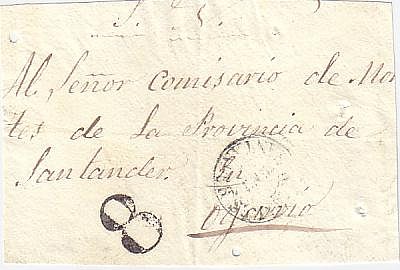 Al Señor Comisario de Mon
tes de la Provincia de
Santander. En
Ogarrio
8